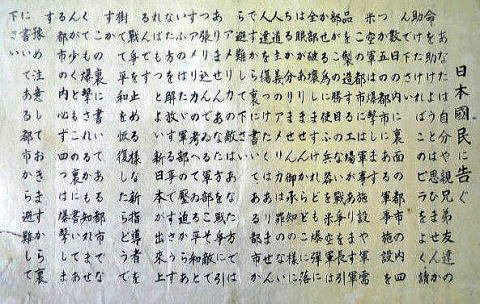 日本國民に告ぐ
あなたは自分や親兄弟友達の
命を助けようとは思ひませんか
助けたければこのビラをよく讀
んで下さい
数日の内に裏面の都市の内四
つか五つの都市にある軍事施設を
米空軍は爆撃します
この都市には軍事施設や軍需
品を製造する工場があります軍
部がこの勝目のない戦争を長引
かせる為に使ふ兵器を米空軍は
全部破壊しますけれども爆弾に
は眼がありませんからどこに落
ちるか分りません御承知の様に
人道主義のアメリカは罪のない
人達を傷つけたくはありません
ですから裏に書いてある都市から
避難して下さい
アメリカの敵はあなた方ではあ
りませんあなた方を戦争に引
張り込んでゐる軍部こそ敵です
アメリカの考へてゐる平和とい
ふのはたゞ軍部の壓迫からあなた
方を解放する事ですさうすれば
もつとよい新日本が出来上るん
です
戦争を止める様な新指導者を
樹てて平和を恢復したらどうですか
この裏に書いてない都市でも爆撃されるかも知れませ
んが少くともこの裏に書いてある都市の内必ず四つは爆撃しま
す
豫め注意しておきますから裏
に書いてある都市から避難して
下さい